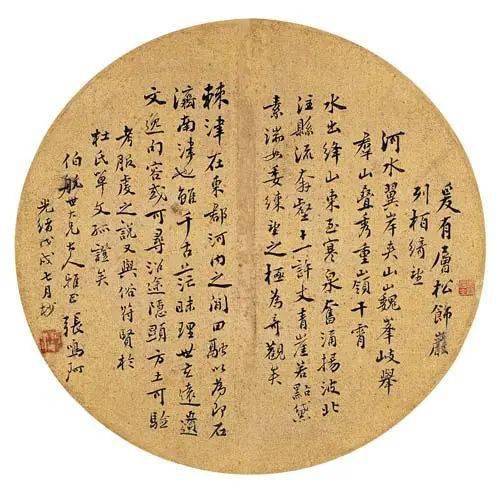 爰有層松飾巖
列栢綺望
河水翼岸夾山巍峯岐舉
群山疊秀重嶺干霄
水出絳山東至寒泉奮涌揚波北
注縣流奔壑一十許丈青崖若點黛
素湍如委練望之極為奇觀矣
棘津在東郡河内之間田融以為即石
濟南津也雖千古茫昧理世玄遠遺
文逸句容或可尋沿途隱顯方土可驗
考服虔之說又與俗符賢於
杜氏單文孤證矣
伯 世大兄大人雅正 張鳴珂
光緒戊戌七月杪